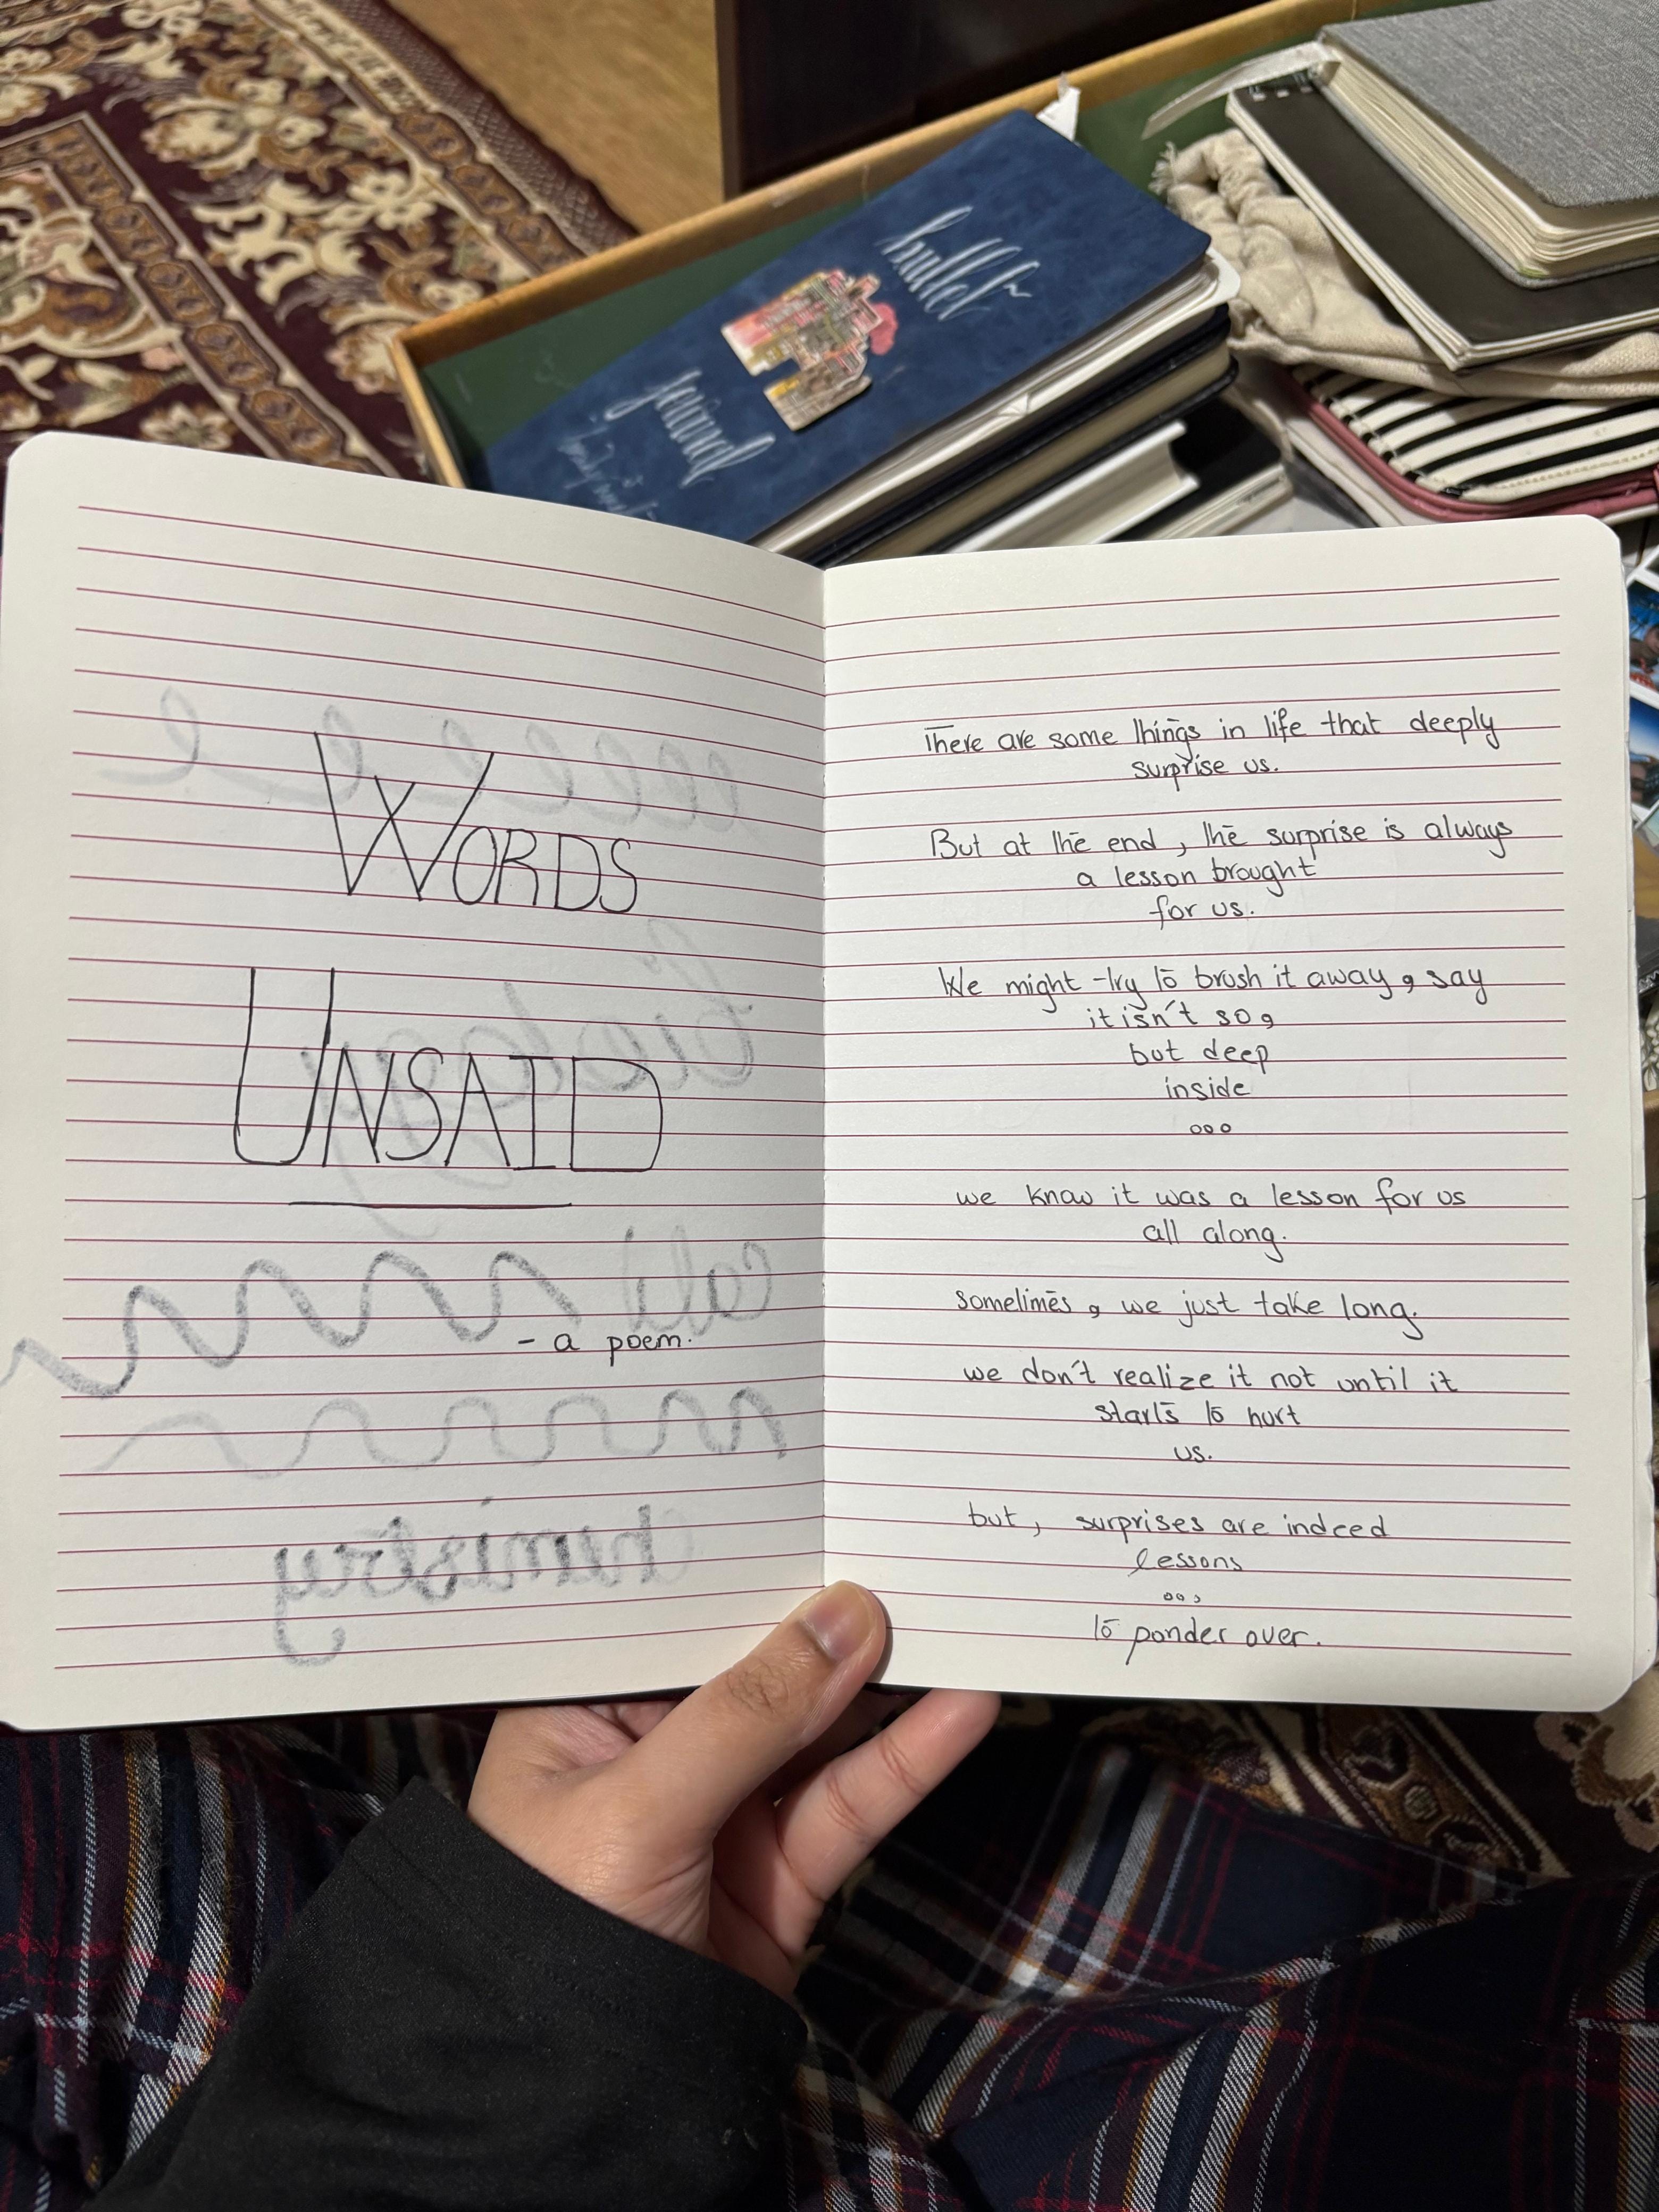 bullet
journal
WORDS
UNSAID
- a poem.
There are some things in life that deeply
surprise us.
But at the end, the surprise is always
a lesson brought
for us.
We might try to brush it away, say
it isn't so,
but deep
inside
...
we know it was a lesson for us
all along.
sometimes, we just take long.
we don't realize it not until it
starts to hurt
us.
but, surprises are indeed
lessons
...
to ponder over.
biology
chemistry